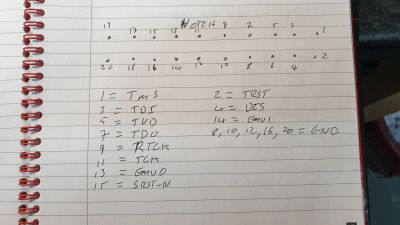 19 17 15 13 NOTCH 11 9 7 5 3 1
20 18 16 14 12 10 8 6 4 2
1 = TMS 2 = TRST
3 = TDI 4 = DIS
5 = TVD 14 = EMU1
7 = TDO 8, 10, 12, 16, 20 = GND
9 = RTCK
11 = TCK
13 = EMU0
15 = SRST-N